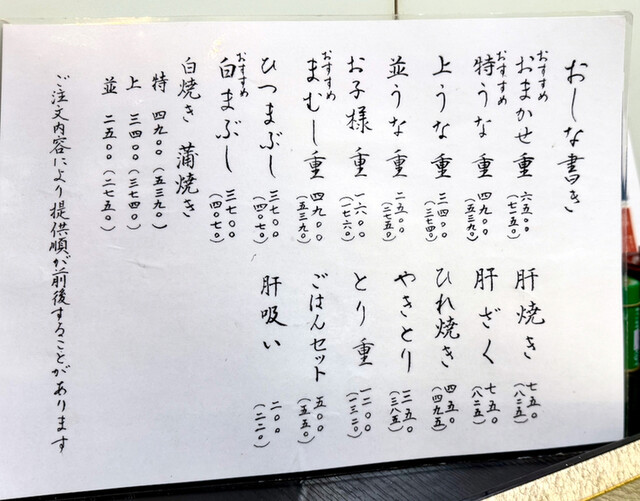 おしな書き
おすすめ
おまかせ重 六五〇〇 (七一五〇)
おすすめ
特うな重 四九〇〇 (五三九〇)
上うな重 三四〇〇 (三七四〇)
並うな重 二五〇〇 (二七五〇)
お子様重 一六〇〇 (一七六〇)
おすすめ
まむし重 四九〇〇 (五三九〇)
ひつまぶし 三七〇〇 (四〇七〇)
おすすめ
白まぶし 三七〇〇 (四〇七〇)
白焼き 蒲焼き
特 四九〇〇(五三九〇)
上 三四〇〇(三七四〇)
並 二五〇〇(二七五〇)
肝焼き 七五〇 (八二五)
肝ざく 七五〇 (八二五)
ひれ焼き 四五〇 (四九五)
やきとり 三五〇 (三八五)
とり重 一二〇〇 (一三二〇)
ごはんセット 五〇〇 (五五〇)
肝吸い 二〇〇 (二二〇)
ご注文内容により提供順が前後することがあります